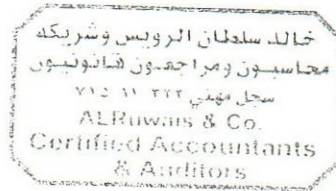 خالد سلطان الرويس وشريكه
محاسبون ومراجعون قانونيون
سجل مهني ٣٢٣ ١١
ALRuwais & Co.
Certified Accountants
& Auditors